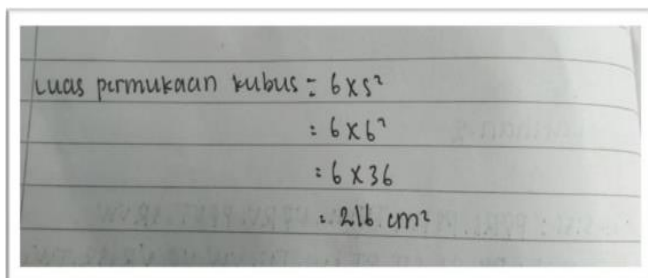 Luas permukaan kubus = 6 x s²
= 6 x 6²
= 6 x 36
= 216 cm²